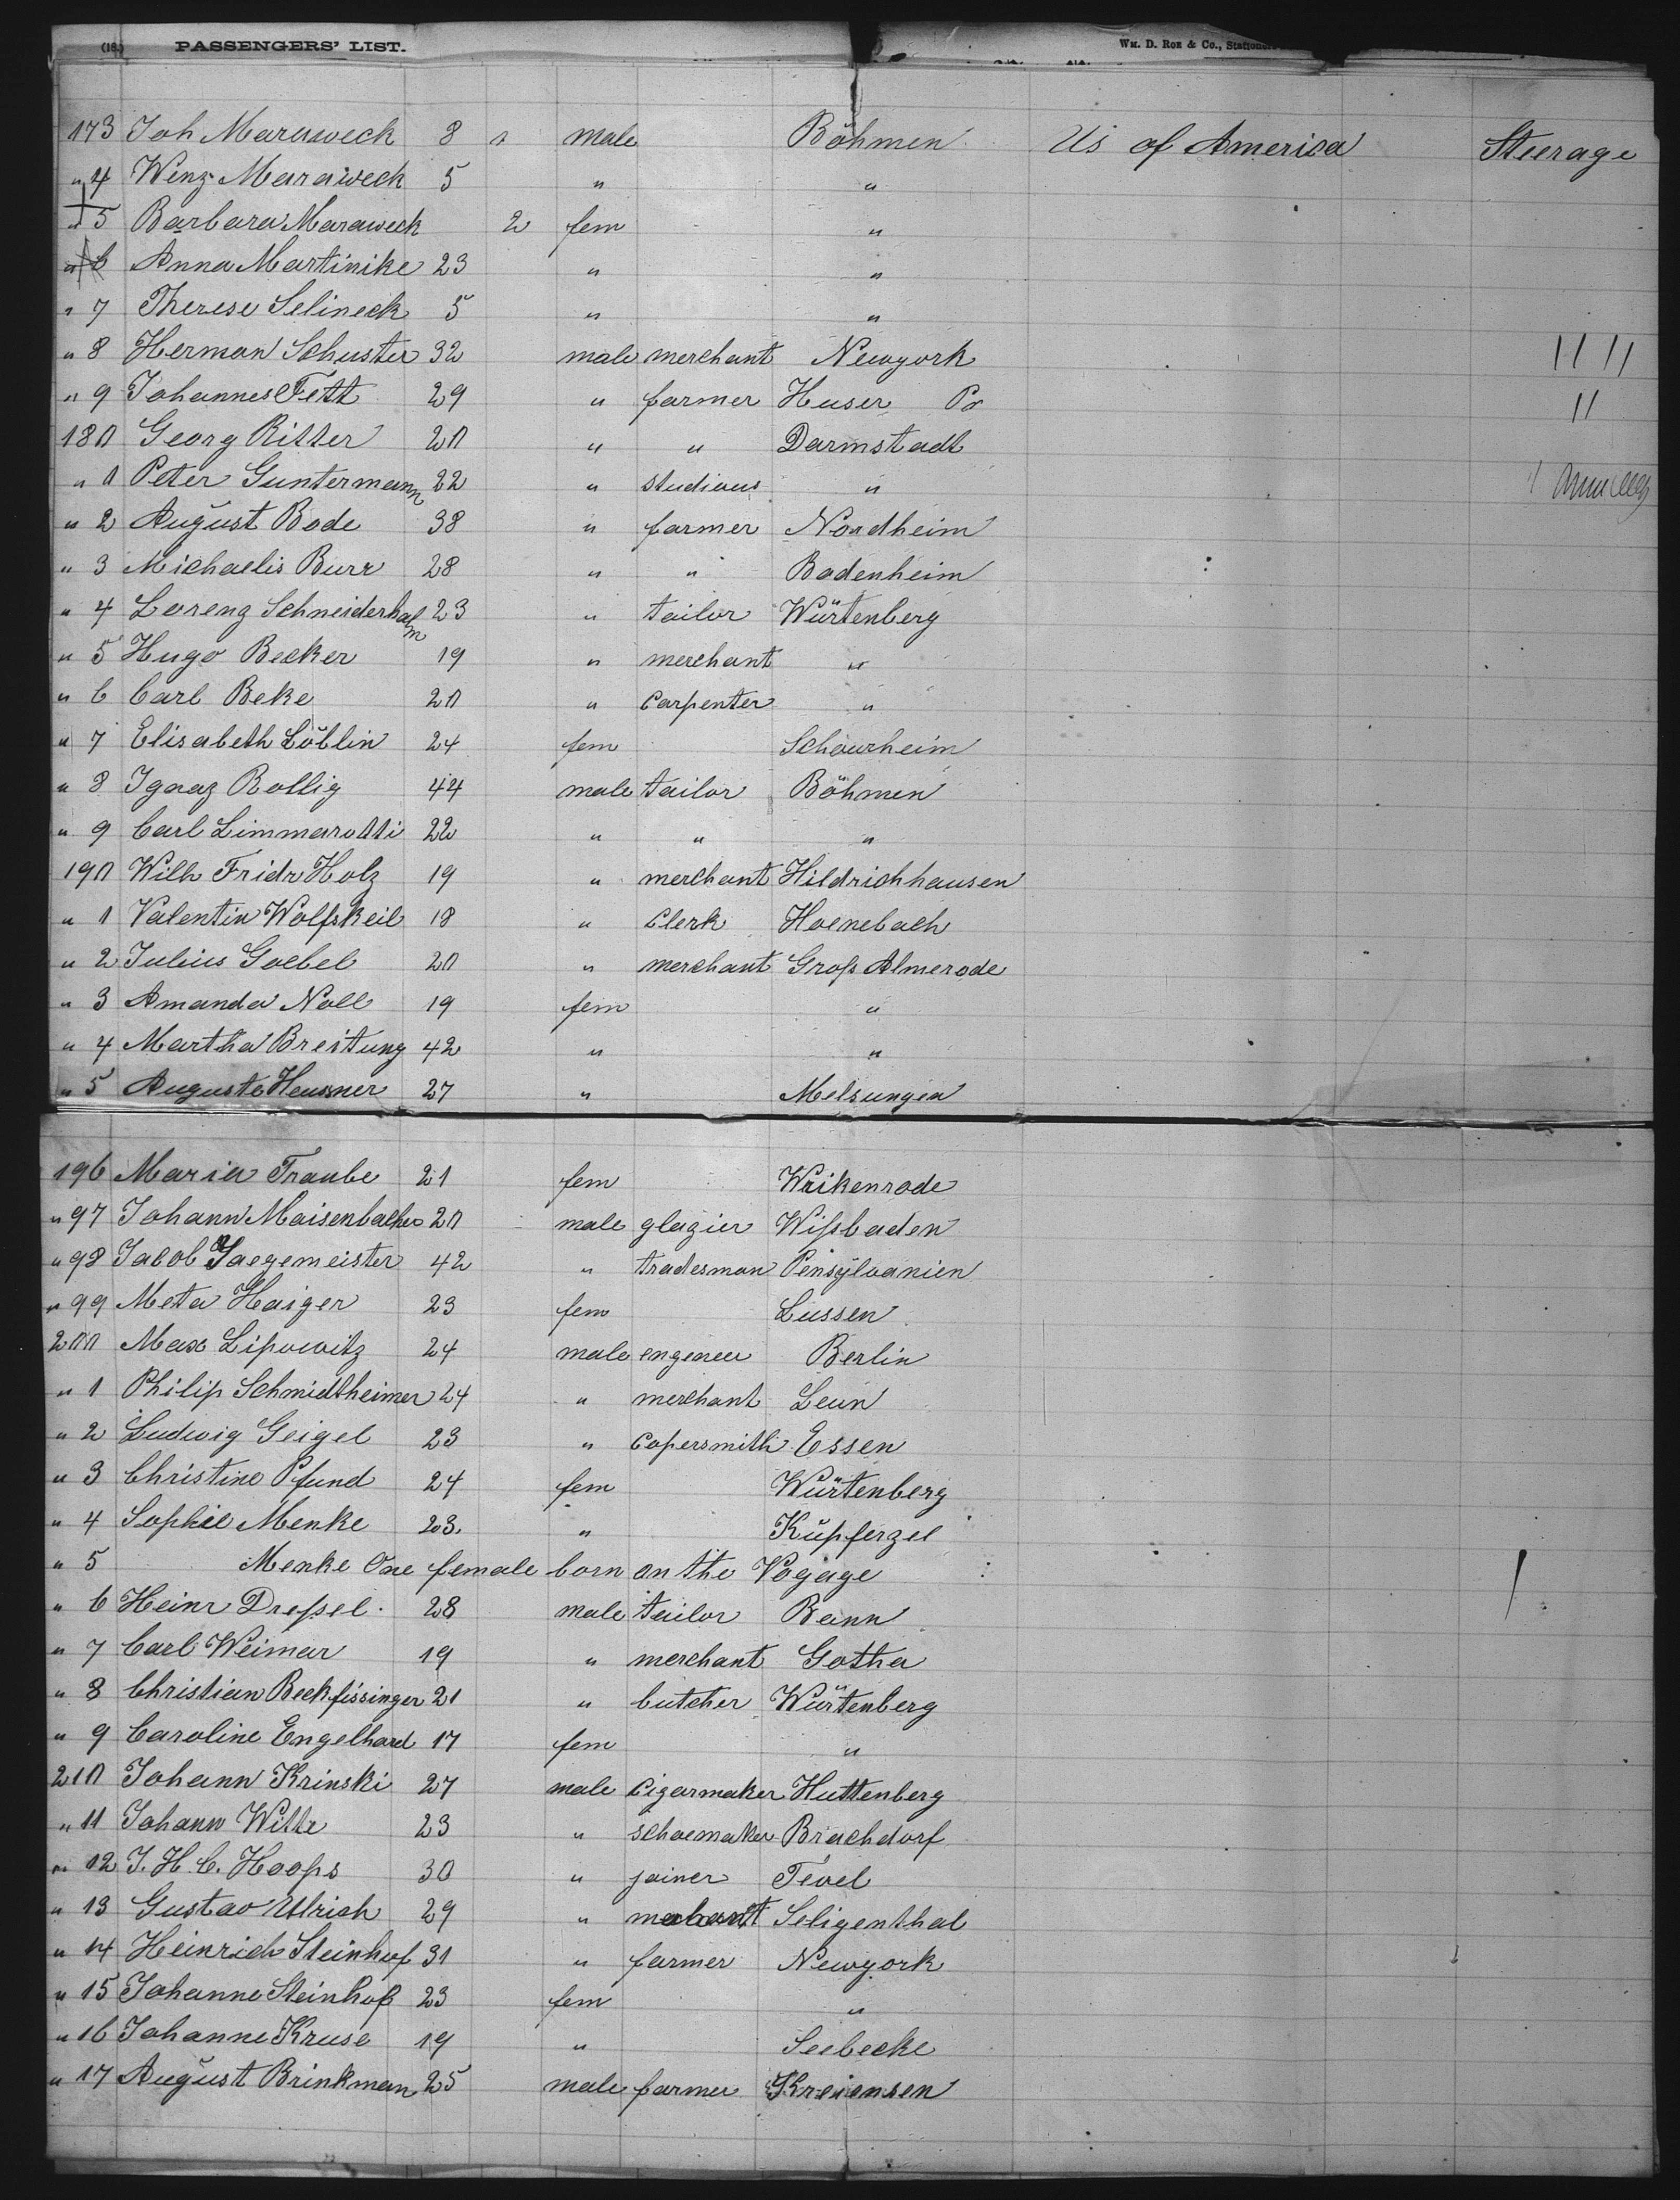 (18.) PASSENGERS' LIST. Wm. D. Roe & Co., Stationers
173 Joh Maraweck 8 male Böhmen Us of America Steerage
" 4 Wenz Maraweck 5 " "
" 5 Barbara Maraweck 2 fem "
" 6 Anna Martinike 23 " "
" 7 Therese Selineck 5 " "
" 8 Herman Schuster 32 male merchant Newyork
" 9 Johannes Fett 29 " farmer Huser Pr
180 Georg Ritter 20 " " Darmstadt
" 1 Peter Guntermann 22 " studious "
" 2 August Bode 38 " farmer Nordheim
" 3 Michaelis Burr 28 " " Badenheim
" 4 Lorenz Schneiderhalm 23 " tailor Würtenberg
" 5 Hugo Becker 19 " merchant "
" 6 Carl Beke 20 " Carpenter "
" 7 Elisabeth Löblin 24 fem Schourheim
" 8 Ignaz Rollig 44 male tailor Böhmen
" 9 Carl Limmarotti 22 " " "
190 Wilh Fridr Holz 19 " merchant Hildrichhausen
" 1 Valentin Wolfskeil 18 " Clerk Hoenebach
" 2 Julius Goebel 20 " merchant Groß Almerode
" 3 Amanda Noll 19 fem "
" 4 Martha Breitung 42 " "
" 5 Auguste Heussner 27 " Melsungen
196 Maria Traube 21 fem Wrikenrode
" 97 Johann Maisenbacher 20 male glazier Wißbaden
" 98 Jacob Jaegemeister 42 " tradesman Pensylvanien
" 99 Meta Haiger 23 fem Lussen
200 Max Lipowitz 24 male engeneer Berlin
" 1 Philip Schmidtheimer 24 " merchant Leun
" 2 Ludwig Geigel 23 " Copersmith Essen
" 3 Christine Pfund 24 fem Würtenberg
" 4 Sophie Menke 23 " Kupferzel
" 5 Menke One female born on the Vogage
" 6 Heinr Dreßel 28 male tailor Bann
" 7 Carl Weimar 19 " merchant Gotha
" 8 Christian Beckfissinger 21 " butcher Würtenberg
" 9 Caroline Engelhard 17 fem "
210 Johann Krinski 27 male Cigarmaker Huttenberg
" 11 Johann Witte 23 " schoemaker Brachdorf
" 12 J. H. C. Hoops 30 " joiner Tevel
" 13 Gustav Ulrich 29 " Seligenthal
" 14 Heinrich Steinhof 31 " farmer Newyork
" 15 Johanne Steinhof 23 fem "
" 16 Johanne Kruse 19 " Seebecke
" 17 August Brinkman 25 male farmer Kreiensen